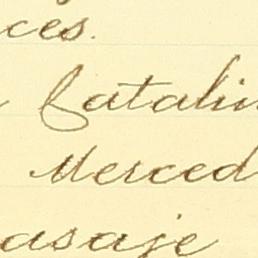 ces.
Catalin
Merced
asaje